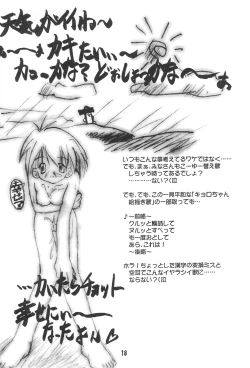 天気がイイね〜
カキたいい〜
カこーかな？どおしょーかな〜
いつもこんな事考えてるワケではなく……
でも、まぁ、みなさんもこーゆー替え歌
しちゃう時ってあるでしょ？
………ない？(泣
でも、でも、この一見平和な「キョロちゃん
絵描き歌」の一部取っても…
♪ー前略ー
クルッと
ヌルッとすべって
も一度おとして
あら、これは！
ー後略ー
ホラ！ちょっとした漢字の変換ミスと
空耳でこんなイヤラシイ歌に……
ならない？(泣
…カいたらチョット
幸せにぃ〜
なったよん♡
18